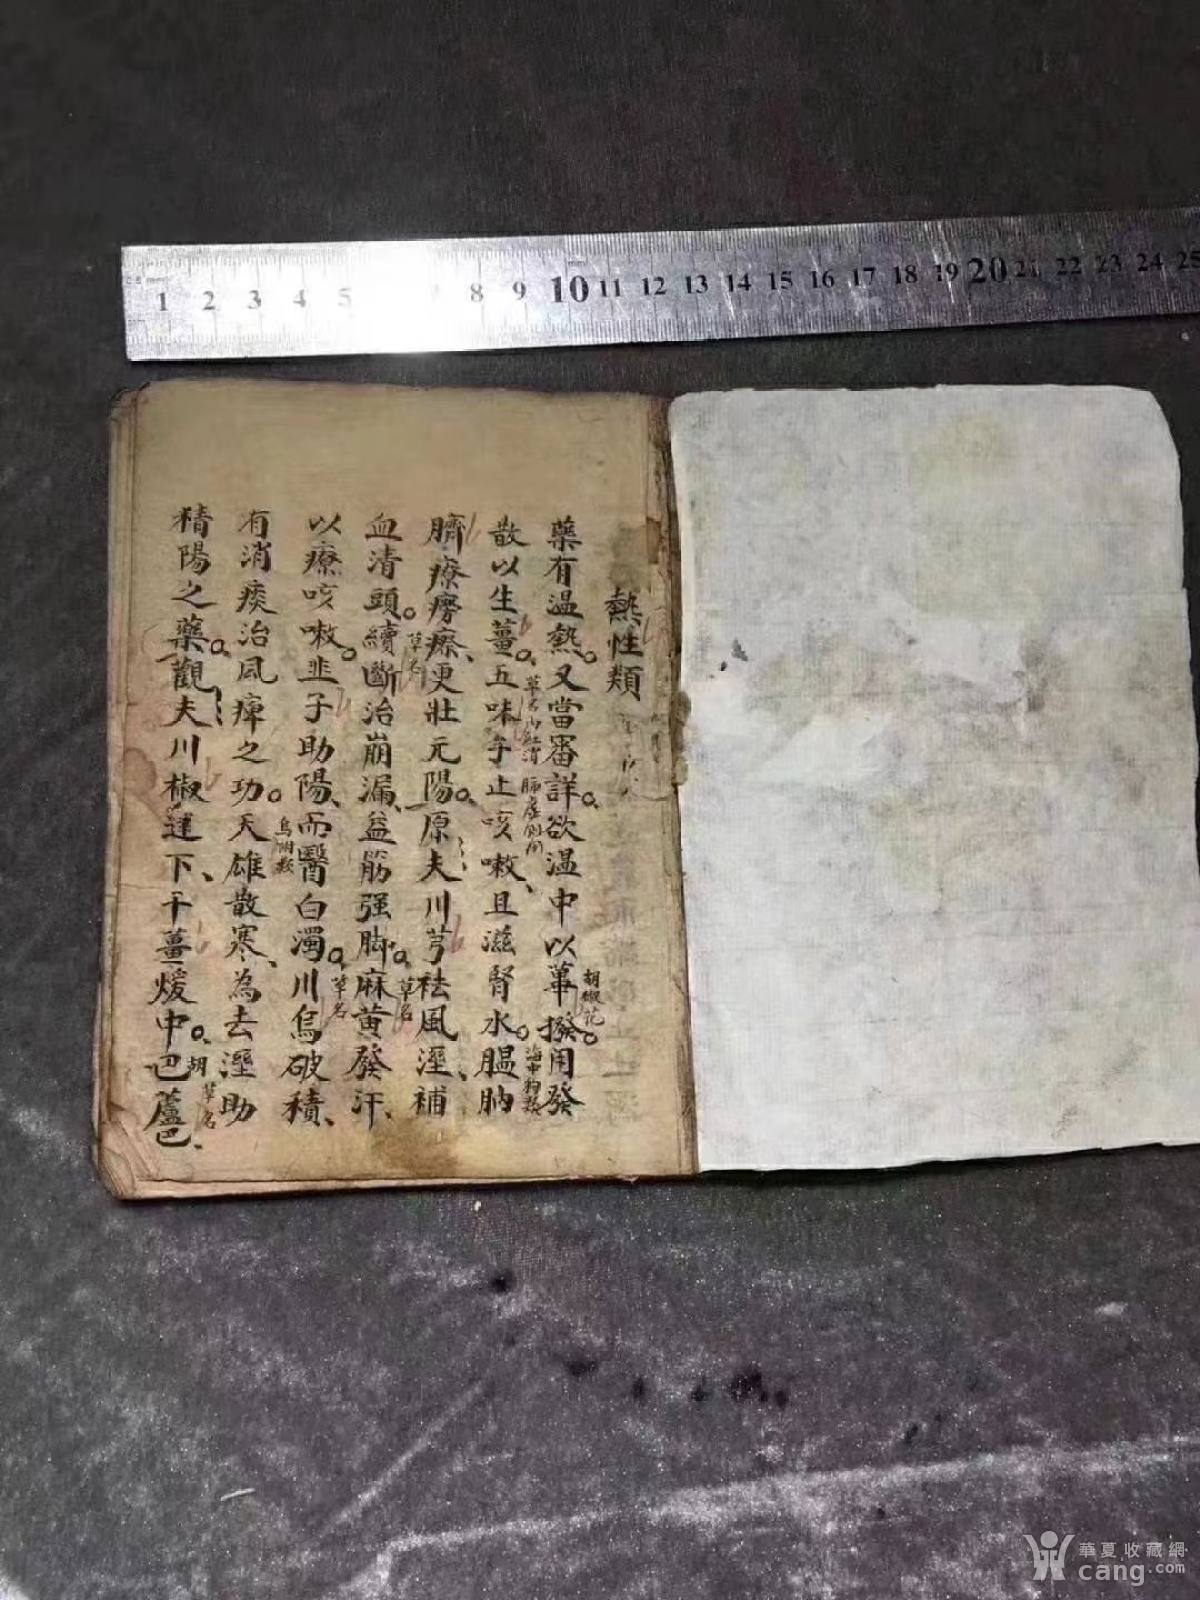 0.5 mm
1 2 3 4 5 7 8 9 10 11 12 13 14 15 16 17 18 19 20 21 22 23 24 25
熱性類
藥有温熱。又當審詳。欲温中以蓽撥。用發
胡椒花
散以生薑。五味子止咳嗽、且滋腎水。膃肭
草名
海中狗類
臍療癆瘵、更壯元陽。原夫川芎祛風溼、補
血清頭。續斷治崩漏、益筋强脚。麻黄發汗、
草名
草名
以療咳嗽。韭子助陽、而醫白濁。川烏破積、
草名
有消痰治風痺之功。天雄散寒、為去溼助
烏附類
精陽之藥。觀夫川椒達下、干薑煖中。胡蘆巴、
草名
華夏收藏網
cang.com